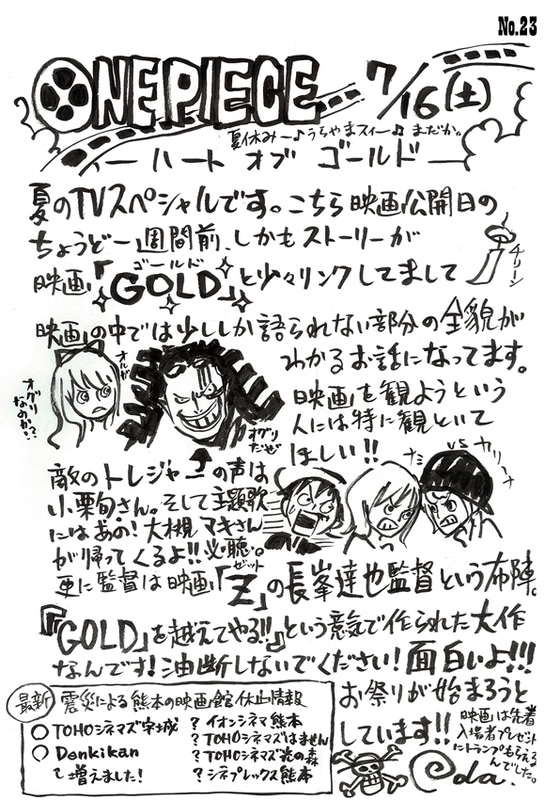 No.23
ONE PIECE 7/16(土)
夏休み〜♪うちやまスイー♫ まだか。
ハート オブ ゴールド
夏のTVスペシャルです。こちら映画公開日の
ちょうど一週間前、しかもストーリーが
ゴールド
映画「GOLD」と少々リンクしてまして
チリーン
映画の中では少ししか語られない部分の全貌が
わかるお話になってます。
オルガ
オグリなのか!?
オグリだぜ
映画を観ようという
人には特に観といて
ほしい!!
敵のトレジャーの声は
小栗旬さん。そして主題歌
にはあの!大槻マキさん
が帰ってくるよ!!必聴。
ナミ vs カリーナ
ゼット
更に監督は映画「Z」の長峯達也監督という布陣。
『「GOLD」を越えてやる!!』という意気で作られた大作
なんです!油断しないでください!面白いよ!!!
お祭りが始まろうと
しています!!
映画は先着
入場者プレゼント
にトランプもらえる
んでした。
Oda.
最新 震災による熊本の映画館休止情報
○TOHOシネマズ宇城
○Denkikan
て増えました!
?イオンシネマ熊本
?TOHOシネマズはません
?TOHOシネマズ光の森
?シネプレックス熊本